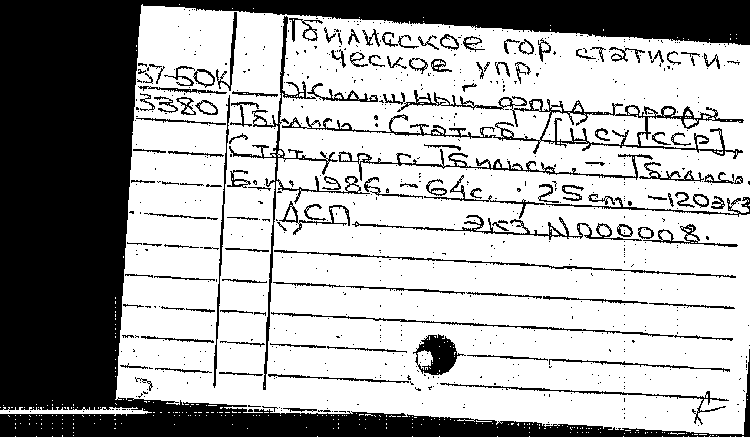 Тбилисское гор. статисти-
ческое упр.
37-50К Жилищный фонд города
3380 Тбилиси : Стат. сб. / [ЦСУ ГССР],
Стат. упр. г. Тбилиси. - Тбилиси.
Б.и., 1986. - 64с. ; 25cm. - 120экз
ДСП. экз. N000008.